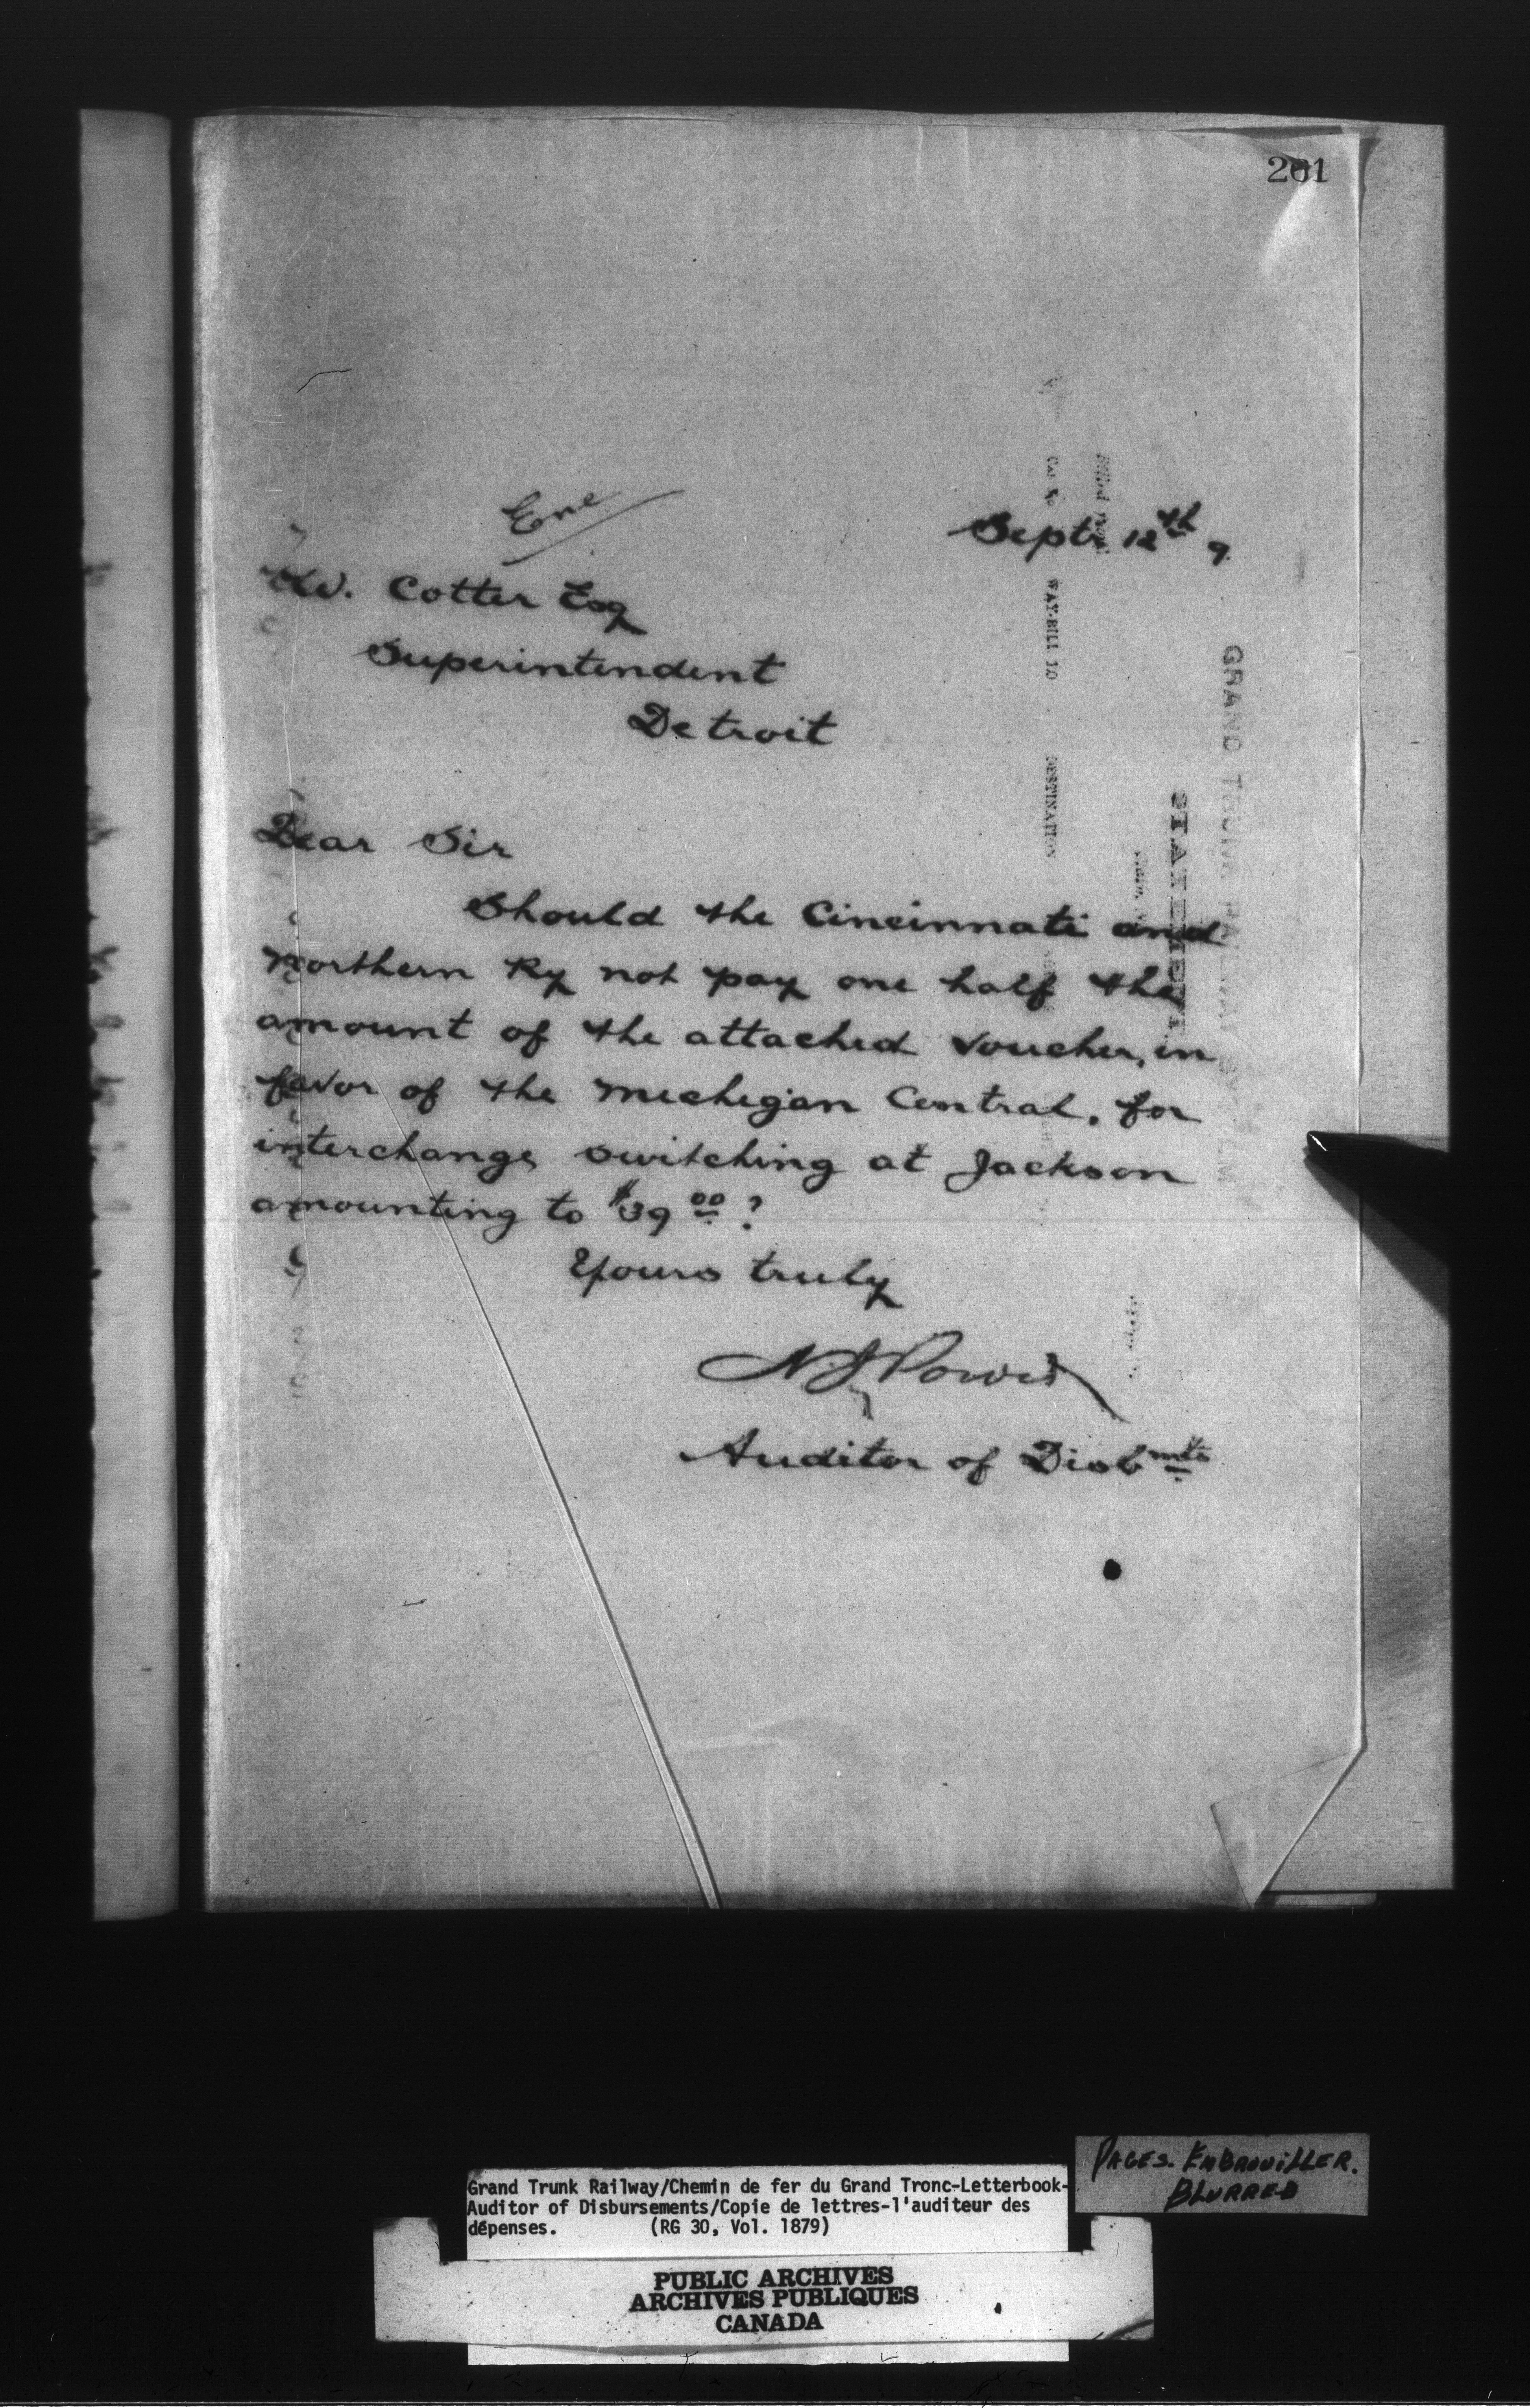 261
Enc
Septr 12th 9
W. Cotter Esq
Superintendent
Detroit
Dear Sir
Should the Cincinnati and
Northern Ry not pay one half the
amount of the attached voucher, in
favor of the Michigan Central, for
interchange switching at Jackson
amounting to $39 00 ?
Yours truly
N J Power
Auditor of Disbmts
Car No
WAY-BILL TO
DESTINATION
STATEMENT
GRAND TRUNK RAILWAY SYSTEM
PAGES. EMBROUILLER.
BLURRED
Grand Trunk Railway/Chemin de fer du Grand Tronc-Letterbook-
Auditor of Disbursements/Copie de lettres-l'auditeur des
dépenses. (RG 30, Vol. 1879)
PUBLIC ARCHIVES
ARCHIVES PUBLIQUES
CANADA